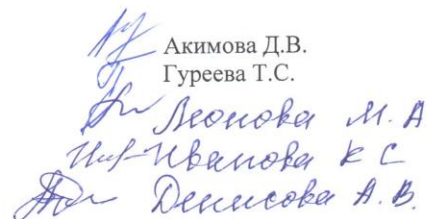 Акимова Д.В.
Гуреева Т.С.
Леонова М. А
Иванова К С
Денисова А. В.